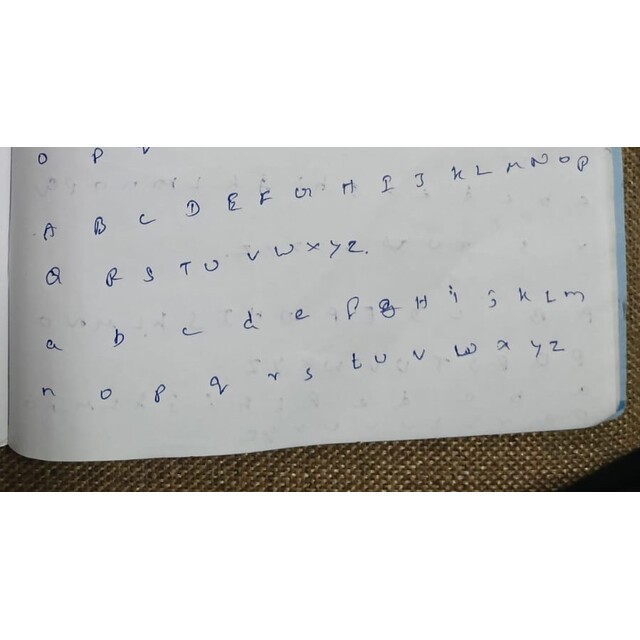 O P V
A B C D E F G H I J K L M N O P
Q R S T U V W X Y Z.
a b c d e f g H i j k L m
n o p q r s t u v w x y z